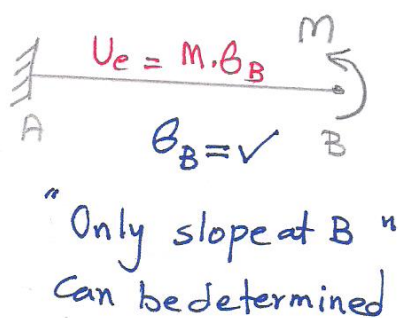 M
Ue = M.θB
A
B
θB = ✓
"Only slope at B"
Can be determined